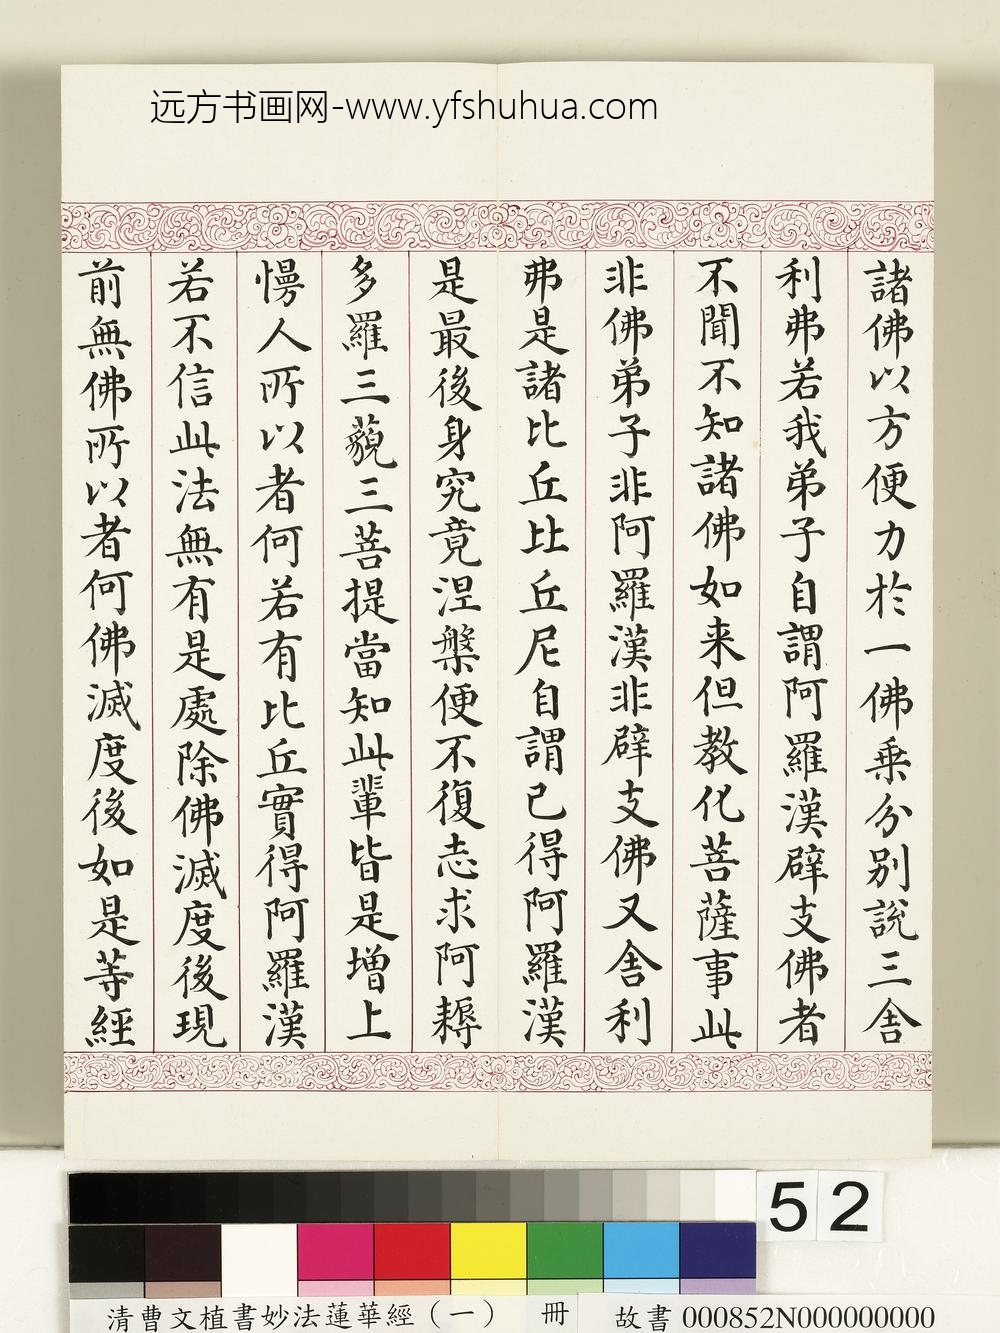 远方书画网-www.yfshuhua.com
諸佛以方便力於一佛乗分别說三舎
利弗若我弟子自謂阿羅漢辟支佛者
不聞不知諸佛如来但教化菩薩事此
非佛弟子非阿羅漢非辟支佛又舎利
弗是諸比丘比丘尼自謂已得阿羅漢
是最後身究竟涅槃便不復志求阿耨
多羅三藐三菩提當知此輩皆是增上
慢人所以者何若有比丘實得阿羅漢
若不信此法無有是處除佛滅度後現
前無佛所以者何佛滅度後如是等經
52
清曹文植書妙法蓮華經（一） 冊 故書 000852N000000000